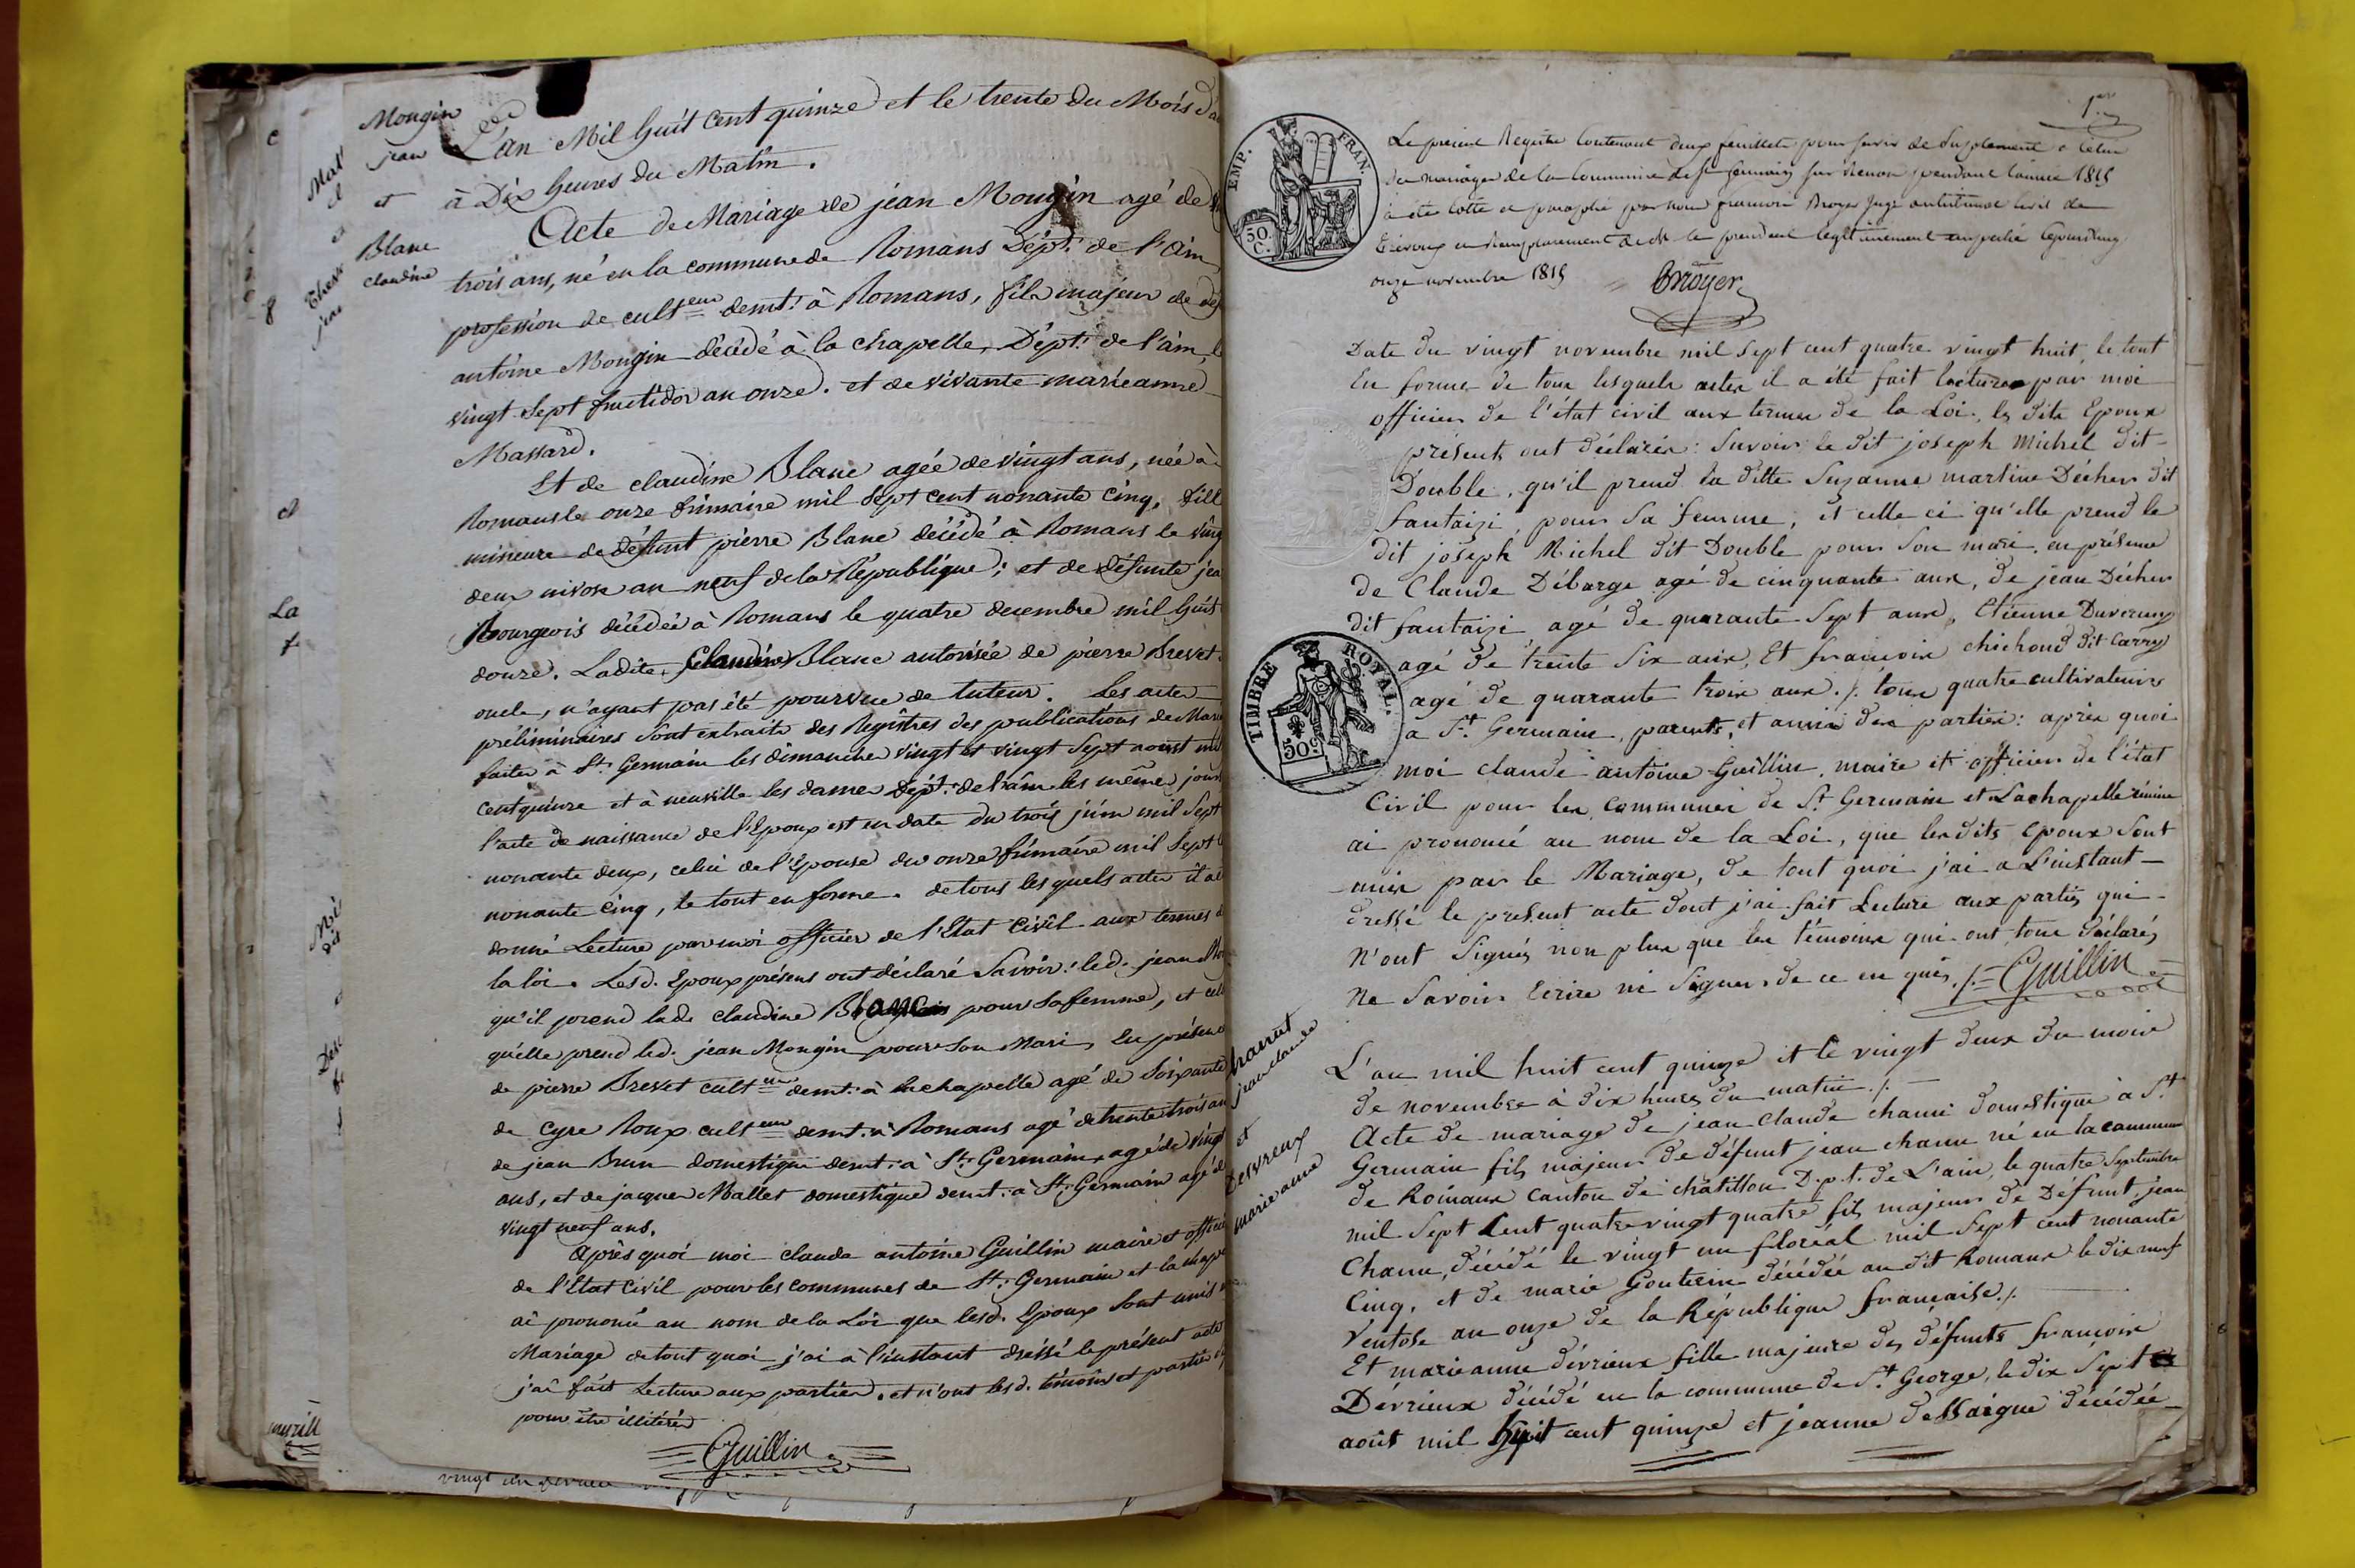 Mongin
jean
et
Blanc
claudine
L'an Mil huit cent quinze et le trente du Mois d'a
à Dix heures du Matin.
Acte de Mariage de jean Mongin agé de
trois ans, né en la commune de Romans Dépt. de l'Ain
profession de culteur demt. à Romans, fils majeur de dé
antoine Mongin décédé à la chapelle, Dépt. de l'ain, le
vingt sept fructidor an onze. et de vivante marieanne
Massard.
Et de claudine Blanc agée de vingt ans, née à
Romans le onze frimaire mil sept cent nonante cinq, fill
mineure de défunt pierre Blanc décédé à Romans le ving
deux nivose an neuf de la République; et de défunte jea
Bourgeois décédée à Romans le quatre decembre mil huit
douze. Ladite Claudine Blanc autorisée de pierre Brevet
oncle, n'ayant pas été pourvue de tuteur. Les actes
préliminaires sont extraits des Registres des publications de Mari
faites à St. Germain les dimanches vingt et vingt sept aoust mil
cent quinze et à neuville les dames Dépt. de l'ain les même jours
l'acte de naissance de l'Epoux est en date du trois juin mil sept
nonante deux, celui de l'Epouse du onze frimaire mil sept c
nonante cinq, le tout en forme. de tous lesquels actes il a é
donné Lecture par moi officier de l'Etat Civil aux termes d
la loi. Lesd. Epoux présens ont déclaré Savoir: led. jean Mo
qu'il prend lade claudine Blanc pour sa femme, et cel
qu'elle prend led. jean Mongin pour son Mari, En présence
de pierre Brevet culteur demt. à la chapelle agé de soixante
de Cyre Roux culteur demt. à Romans agé de trente trois an
de jean Brun domestique demt. à St. Germain agé de vingt
ans, et de jacques Mallet domestique demt. à St. Germain agé de
vingt neuf ans.
Après quoi moi claude antoine Guillin maire et officie
de l'Etat Civil pour les communes de St. Germain et la chape
ai prononcé au nom de la Loi que lesd. Epoux sont unis
Mariage de tout quoi j'ai à l'instant dréssé le présent acte
j'ai fait Lecture aux parties. et n'ont lesd. témoins et parties
pour être illitérés
Guillin
1er
EMP. FRAN.
50 C.
Le présent Registre contenant deux feuillets pour servir de suplement à celui
de mariages de la commune de St Germain sur Renon pendant l'année 1815
à été cotté et paraphé par nous Broyer juge au tribunal civil de
Trévoux en remplacement de M. le président légitimement empeché
onze novembre 1815
Broyer
Date du vingt novembre mil sept cent quatre vingt huit, le tout
En forme de tous lesquels actes il a été fait lecture par moi
officier de l'état civil aux termes de la Loi. les dits Epoux
présents ont déclarés: Savoir le dit joseph Michel dit
Double, qu'il prend la ditte Suzanne martine Décher dit
fantaisi, pour sa femme, et celle ci qu'elle prend le
dit joseph Michel dit Double pour son mari. en présence
de Claude Débarge agé de cinquante ans, de jean Décher
dit fantaisi agé de quarante sept ans, Etienne Duverney
TIMBRE ROYAL.
50 c
agé de trente six ans, Et francois chichoud dit Carry
agé de quarante trois ans./. tous quatre cultivateurs
a St. Germain, parents, et amis des parties: après quoi
moi claude antoine Guillin, maire et officier de l'état
Civil pour les communes de St. Germain et Lachapelle réunies
ai prononcé au nom de la Loi, que les dits epoux sont
unis par le Mariage, de tout quoi j'ai a L'instant
dressé le présent acte dont j'ai fait Lecture aux parties qui
N'ont Signés non plus que les témoins qui ont tous déclarés
Ne Savoir Ecrire ni Signer de ce en quis./. Guillin
jean claude
et
Desvreux
marie anne
L'an mil huit cent quinze et le vingt deux du mois
de novembre à dix heures du matin./.
Acte de mariage de jean Claude chanu domestique à St.
Germain fils majeur de défunt jean chanu né en la commune
de Romans canton de châtillon D.p.t. de L'ain, le quatre septembre
mil sept Cent quatre vingt quatre fils majeur de Défunt jean
Chanu, décédé le vingt un floréal mil sept cent nonante
Cinq, et de marie Gouterin décédée au dit Romans le dix neuf
Ventose an onze de la République française./.
Et marieanne dévrieux fille majeure des défunts francois
Dévrieux décédé en la commune de St. George, le dix sept
août mil huit cent quinze et jeanne deSSaigue décédée